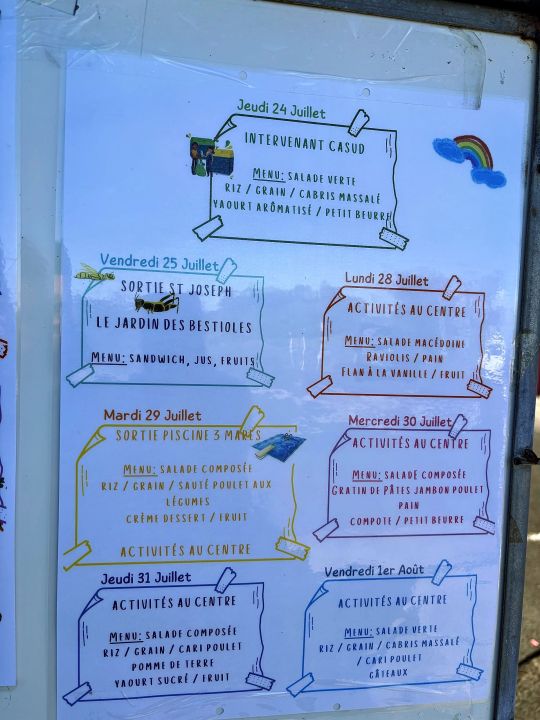 Jeudi 24 Juillet
INTERVENANT CASUD
MENU: SALADE VERTE
RIZ / GRAIN / CABRIS MASSALÉ
YAOURT ARÔMATISÉ / PETIT BEURRE
Vendredi 25 Juillet
SORTIE ST JOSEPH
LE JARDIN DES BESTIOLES
MENU: SANDWICH, JUS, FRUITS
Lundi 28 Juillet
ACTIVITÉS AU CENTRE
MENU: SALADE MACÉDOINE
RAVIOLIS / PAIN
FLAN À LA VANILLE / FRUIT
Mardi 29 Juillet
SORTIE PISCINE 3 MARES
MENU: SALADE COMPOSÉE
RIZ / GRAIN / SAUTÉ POULET AUX
LÉGUMES
CRÈME DESSERT / FRUIT
ACTIVITÉS AU CENTRE
Mercredi 30 Juillet
ACTIVITÉS AU CENTRE
MENU: SALADE COMPOSÉE
GRATIN DE PÂTES JAMBON POULET
PAIN
COMPOTE / PETIT BEURRE
Jeudi 31 Juillet
ACTIVITÉS AU CENTRE
MENU: SALADE COMPOSÉE
RIZ / GRAIN / CARI POULET
POMME DE TERRE
YAOURT SUCRÉ / FRUIT
Vendredi 1er Août
ACTIVITÉS AU CENTRE
MENU: SALADE VERTE
RIZ / GRAIN / CABRIS MASSALÉ
/ CARI POULET
GÂTEAUX